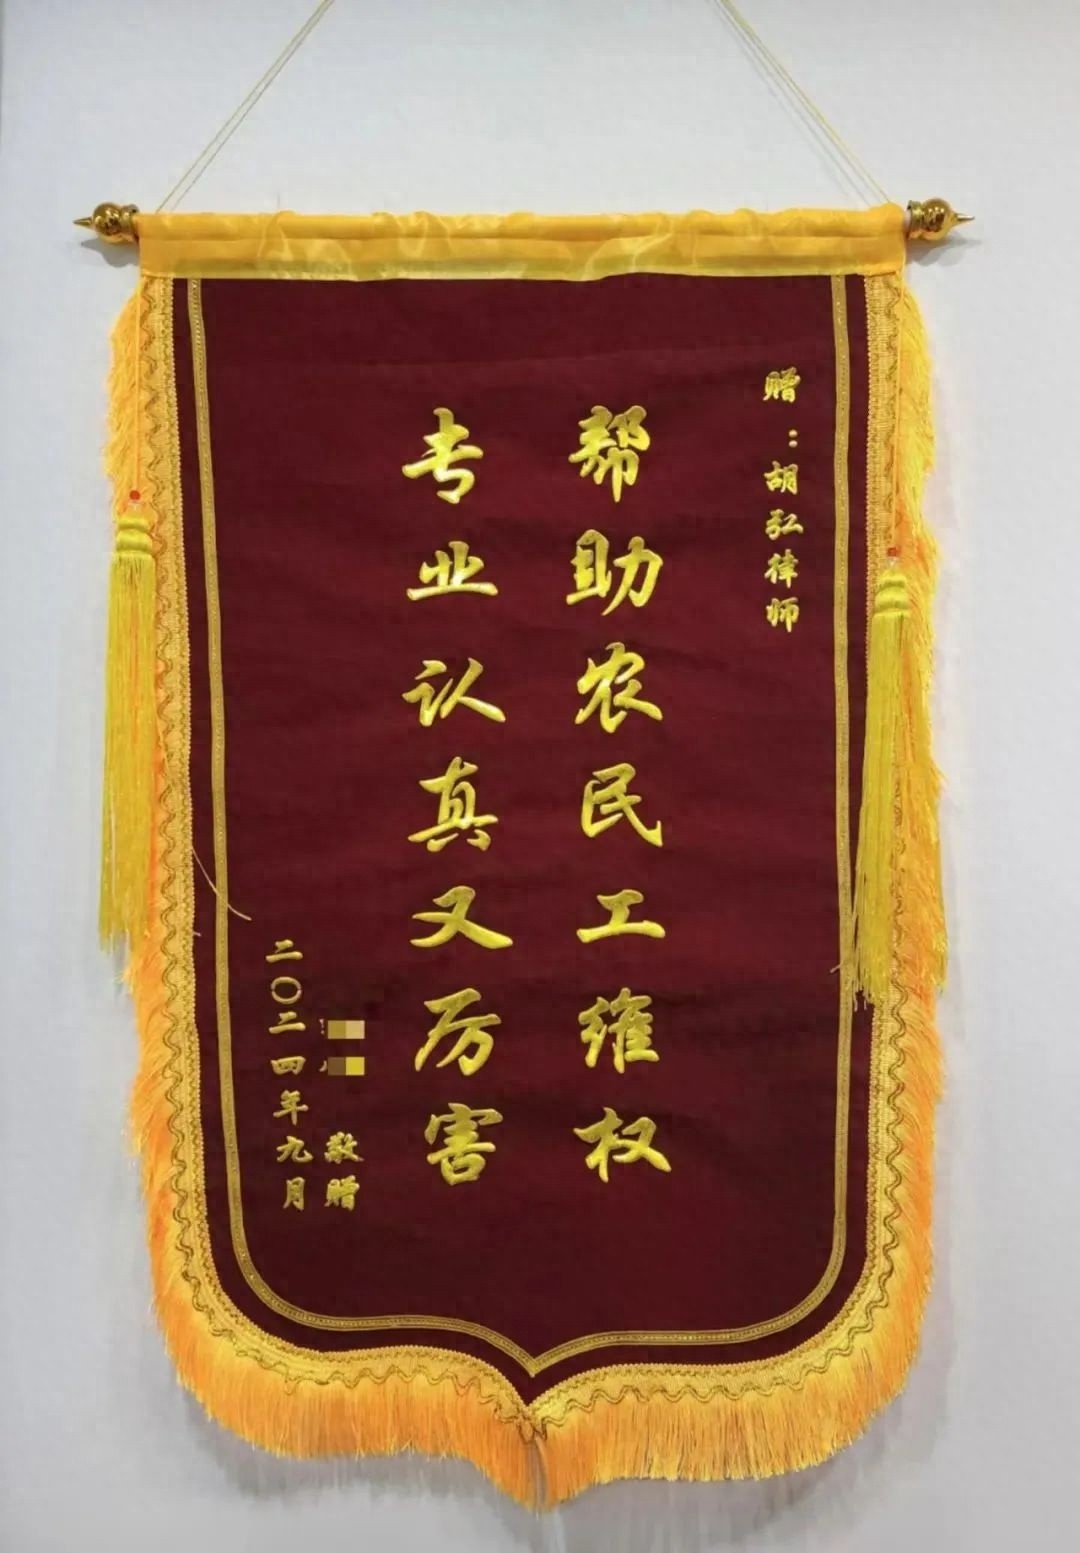 赠：胡弘律师
帮助农民工维权
专业认真又厉害
敬赠
二〇二四年九月